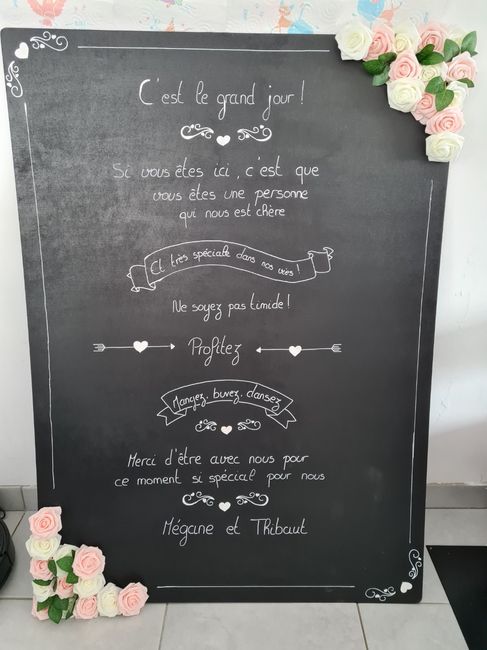 C'est le grand jour !
Si vous êtes ici, c'est que
vous êtes une personne
qui nous est chère
Et très spéciale dans nos vies !
Ne soyez pas timide !
Profitez
Mangez, buvez, dansez
Merci d'être avec nous pour
ce moment si spécial pour nous
Mégane et Thibaut